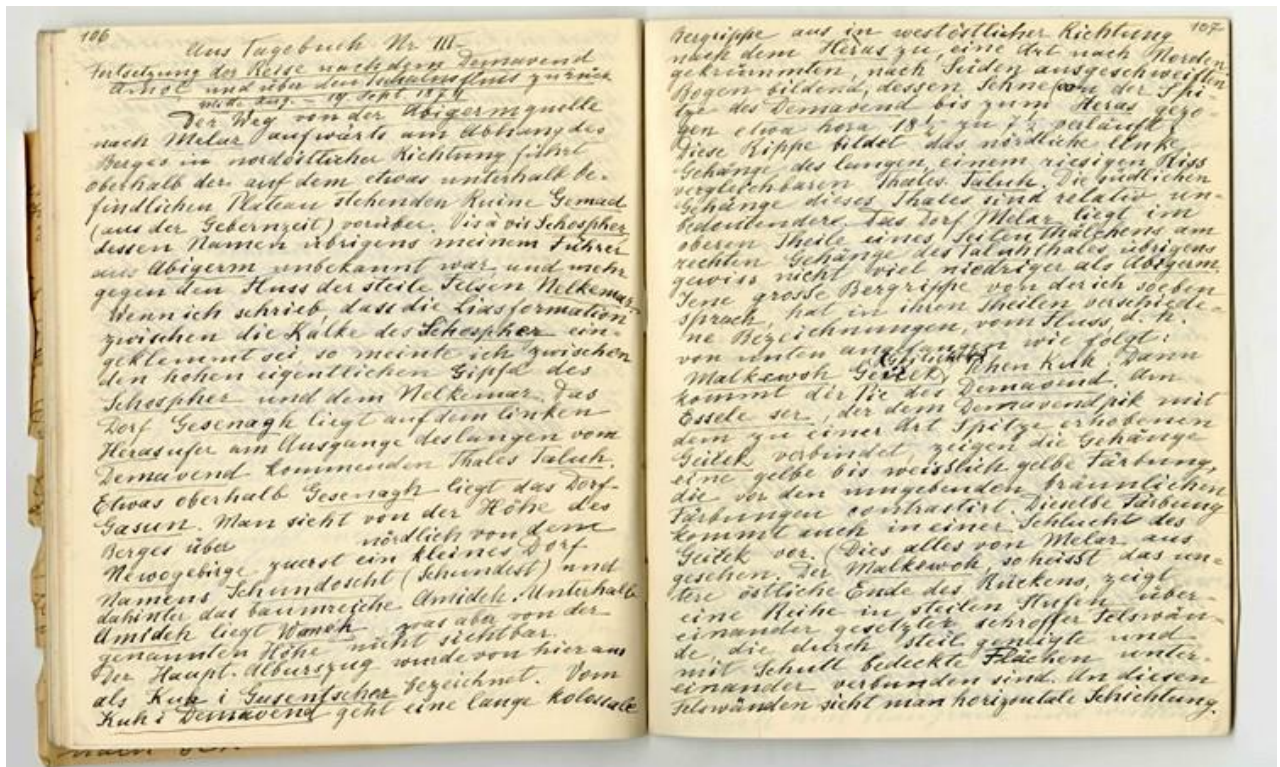 106
Aus Tagebuch Nr III.
Fortsetzung der Reise nach dem Demavend
Amol und über den Talalmsfluss zurück
Mitte Aug. – 19 Sept. 187
Der Weg von der Abigermquelle
nach Melar aufwärts am Abhang des
Berges in nordöstlicher Richtung führt
oberhalb der auf dem etwas unterhalb be-
findlichen Plateau stehenden Ruine Gemad
(aus der Gebernzeit) vorüber. Vis à vis Schospher
dessen Namen übrigens meinem Führer
aus Abigerm unbekannt war und mehr
gegen den Fluss der steile Felsen Nelkemar.
Wenn ich schrieb, dass die Liasformation
zwischen die Kalke des Schospher ein-
geklemmt sei, so meinte ich zwischen
den hohen eigentlichen Gipfel des
Schospher und dem Nelkemar. Das
Dorf Gesenagh liegt auf dem linken
Herasufer am Ausgange des langen vom
Demavend kommenden Thales Taluh.
Etwas oberhalb Gesenagh liegt das Dorf
Gasun. Man sieht von der Höhe des
Berges über nördlich von dem
Newogebirge zuerst ein kleines Dorf
Namens Schundoscht (Schundest) und
dahinter das baumreiche Amideh. Unterhalb
Amideh liegt Waneh was aber von der
genannten Höhe nicht sichtbar.
Der Haupt-Alburszug wurde von hier aus
als Kuh i Gusentscher bezeichnet. Vom
Kuh i Demavend geht eine lange kolossale
107
Bergrippe aus in westöstlicher Richtung
nach dem Heras zu, eine Art nach Norden
gekrümmten, nach Süden ausgeschweiften
Bogen bildend, dessen Sehne von der Spi-
tze des Demavend bis zum Heras gezo-
gen etwa hora 18½ zu 7½ verläuft.
Diese Rippe bildet das nördliche linke
Gehänge des langen, einem riesigen Riss
vergleichbaren Thales Taluh. Die südlichen
Gehänge dieses Thales sind relativ un-
bedeutender. Das Dorf Melar liegt im
oberen Theile eines Seitenthälchens am
rechten Gehänge des Taluhthales, übrigens
gewiss nicht viel niedriger als Abigerm.
Jene grosse Bergrippe von der ich soeben
sprach, hat in ihren Theilen verschiede-
ne Bezeichnungen, vom Fluss, d. h.
von unten angefangen wie folgt:
Malkewoh Geitek Kuh, Dann
kommt der Pic des Demavend. Am
Essele ser, der dem Demavendpik mit
dem zu einer Art Spitze erhobenen
Geitek verbindet, zeigen die Gehänge
eine gelbe bis weisslich gelbe Färbung,
die vor den umgebenden bräunlichen
Färbungen contrastirt. Dieselbe Färbung
kommt auch in einer Schlucht des
Geitek vor. (Dies alles von Melar aus
gesehen. Der Malkewoh, so heisst das un-
tere östliche Ende des Rückens, zeigt
eine Reihe in steilen Stufen über-
einander gesetzter schroffer Felswän-
de, die durch steil geneigte und
mit Schutt bedeckte Flächen unter-
einander verbunden sind. An diesen
Felswänden sieht man horizontale Schichtung.